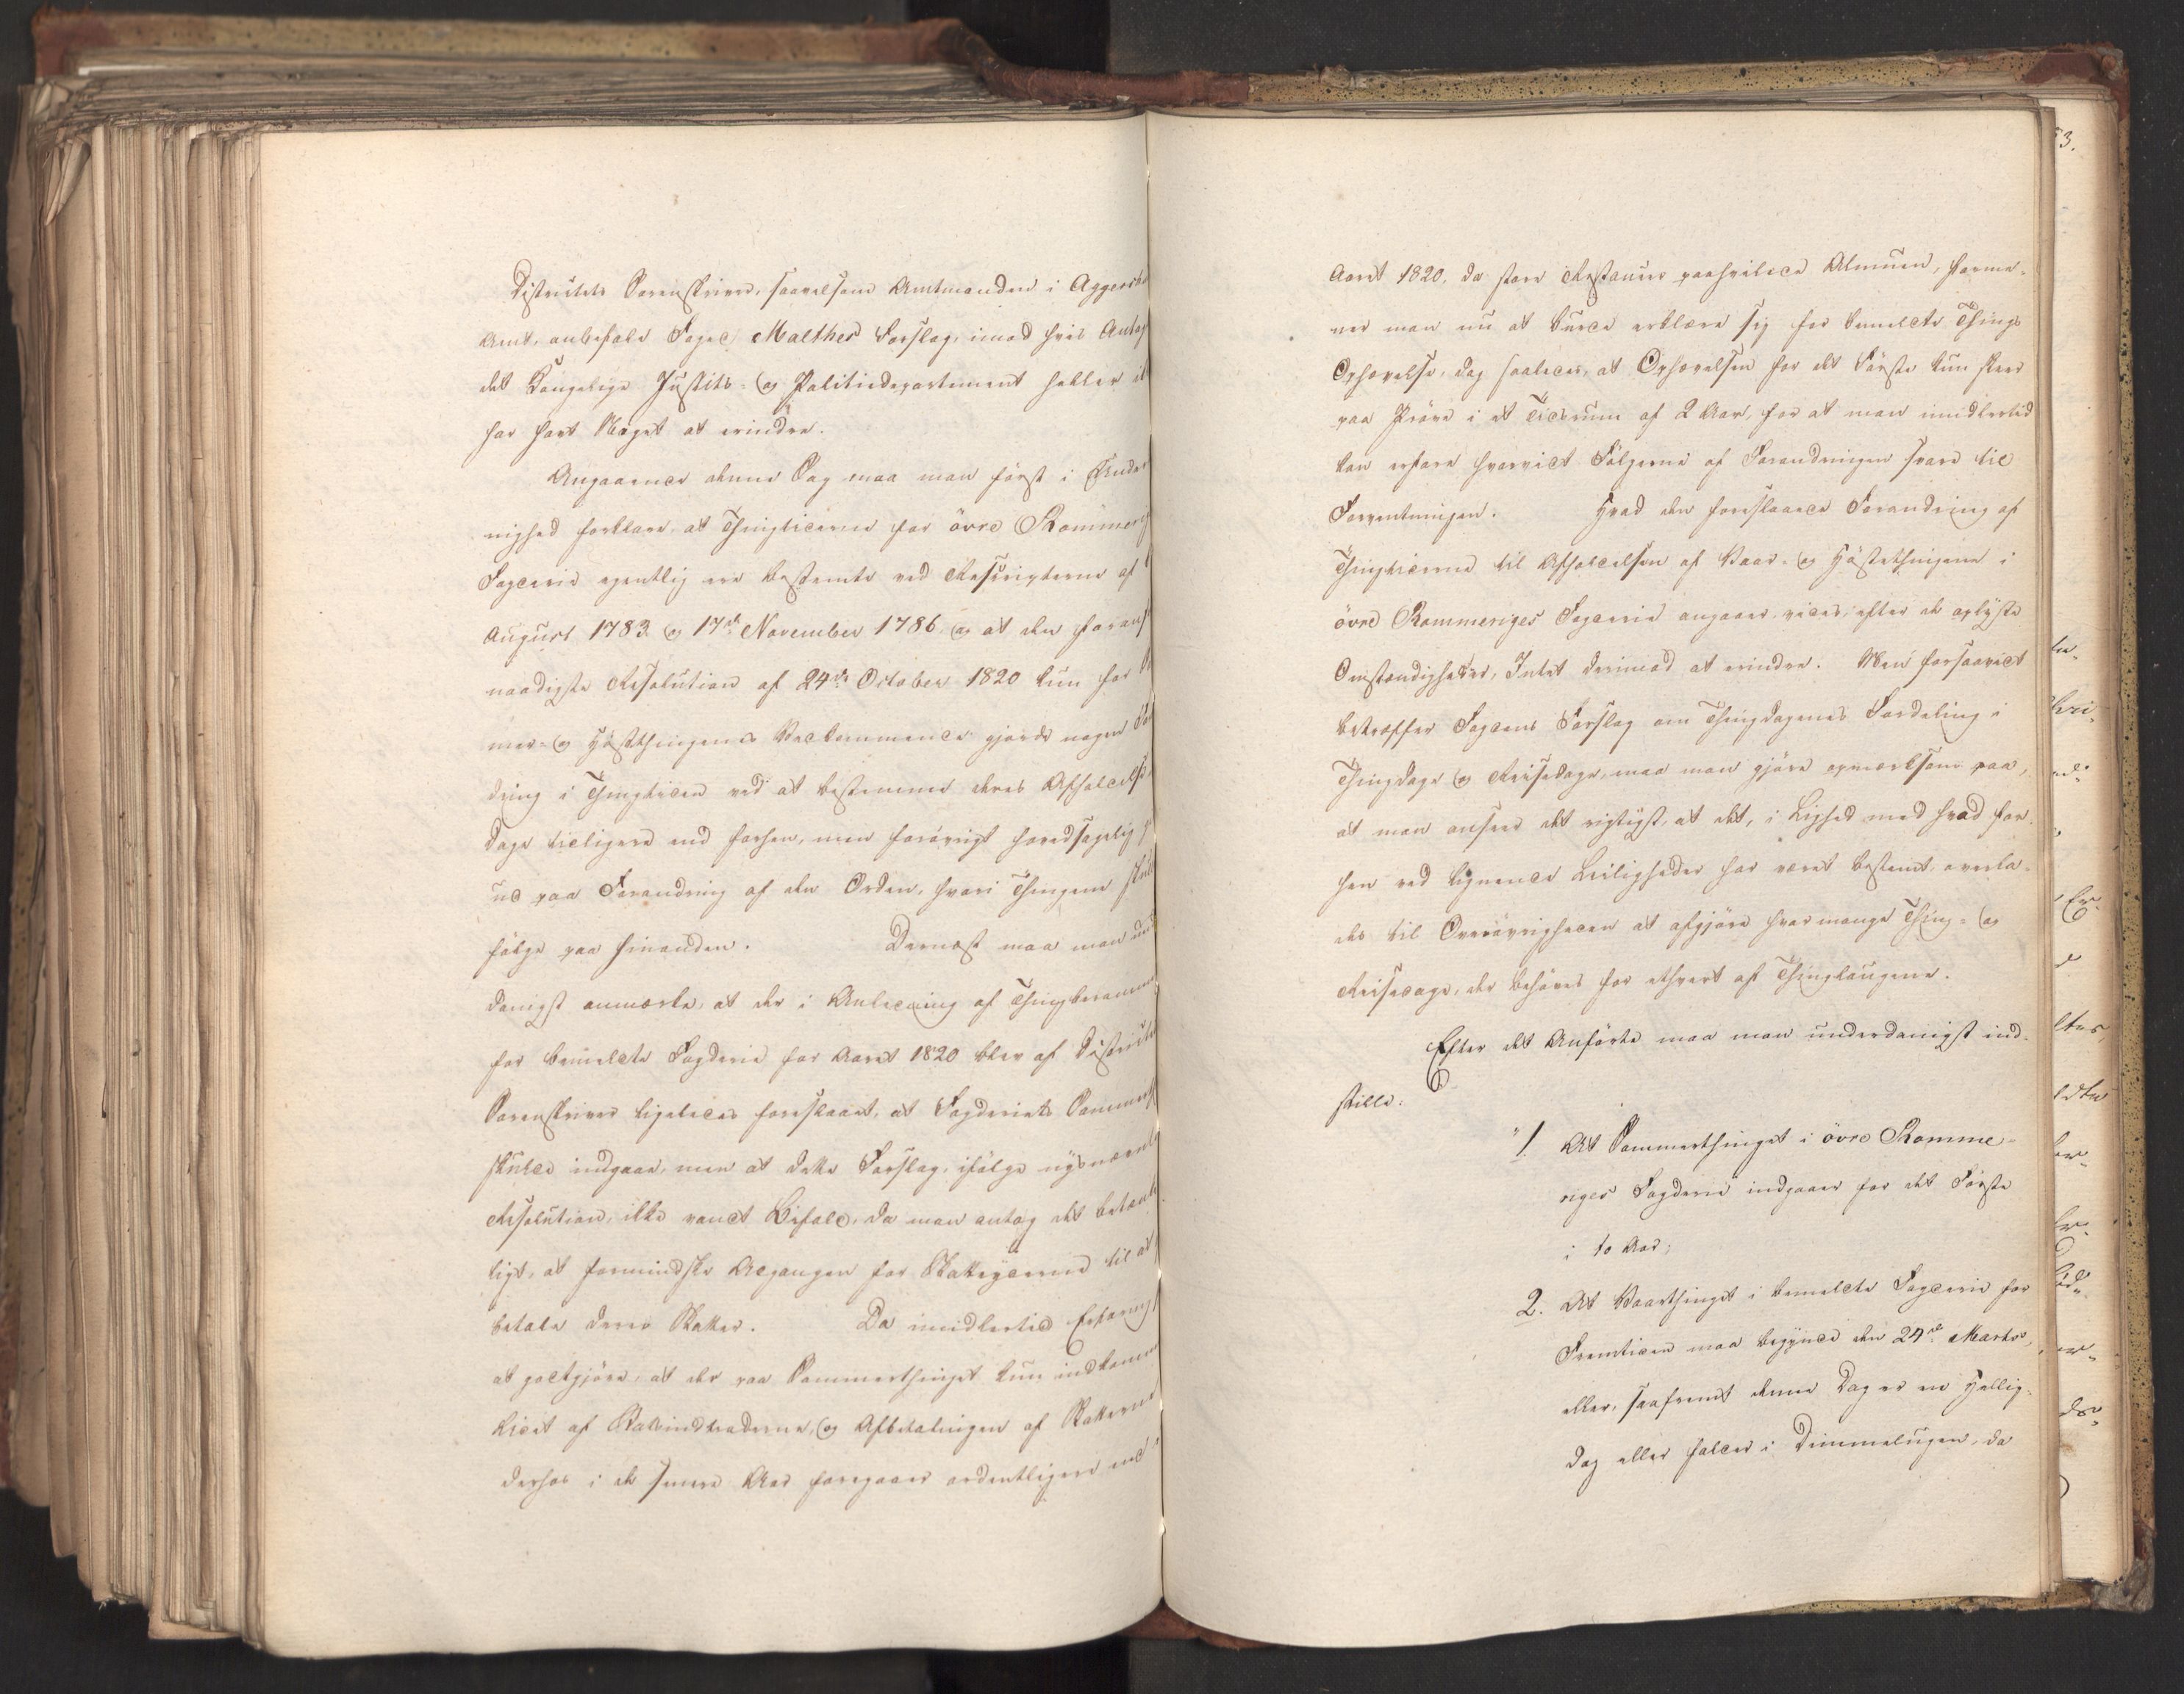 Districtets Sorenskriver, saavelsom Amtmanden i Aggersh
Amt, anbefale Foged Malthes Forslag, imod hvis Antag
det Kongelige Justits- og Politiedepartement heller ik
har havt Noget at erindre.
Angaaende denne Sag maa man først i Under
nighed forklare, at Thingtiderne for øvre Rommerig
Fogderie egentlig ere bestemte ved Rescripterne af
August 1783 og 17de November 1786, og at den
naadigste Resolution af 24de October 1820 kun for
mer- og Høstthingenes Vedkommende gjorde nogen
dring i Thingtiden ved at bestemme deres Afholdels
Dage tidligere end forhen, men forøvrigt hovedsagelig
ud paa Forandring af den Orden, hvori Thingene skul
følge paa hinanden. Dernæst maa man un
danigst anmærke, at der i Anledning af Thingberamm
for bemeldte Fogderie for Aaret 1820 blev af Districte
Sorenskriver ligeledes foreslaaet, at Fogderiets Sommerth
skulde indgaae, men at dette Forslag, ifølge nysnævnte
Resolution, ikke vandt Bifald, da man antog det betænk
ligt, at formindske Adgangen for Skatteyderne til at
betale deres Skatter. Da imidlertid Erfaring
at godtgjøre, at der paa Sommerthinget kun indkomme
lidet af Skatteindtræderne, og Afbetalingen af Skatterne
derhos i de senere Aar foregaaer ordentligere end i
Aaret 1820, da store Restancer paahvilede Almuen, forme-
ner man nu at burde erklære sig for bemeldte Things
Ophævelse, dog saaledes, at Ophævelsen for det Første kun skeer
paa Prøve i et Tidsrum af 2 Aar, for at man imidlertid
kan erfare hvorvidt Følgerne af Forandringen svare til
Forventningen. Hvad den foreslaaede Forandring af
Thingtiderne til Afholdelsen af Vaar- og Høstethingene i
øvre Rommeriges Fogderie angaaer, vides, efter de oplyste
Omstændigheder, Intet derimod at erindre. Men forsaavidt
betræffer Fogdens Forslag om Thingdagenes Fordeling i
Thingdage og Reisedage, maa man gjøre opmærksom paa,
at man anseer det rigtigst, at det, i Lighed med hvad for-
hen ved lignende Leiligheder har været bestemt, overla-
des til Overøvrigheden at afgjøre hvormange Thing- og
Reisedage, der behøves for ethvert af Thinglaugene.
Efter det Anførte maa man underdanigst ind-
stille:
"1. At Sommerthinget i øvre Romme-
riges Fogderie indgaaer for det Første
i to Aar;
2. At Vaarthinget i bemeldte Fogderie for
Fremtiden maa begynde den 24de Martss,
eller, saafremt denne Dag er en Hellig-
dag eller falder i Dimmelugen, da